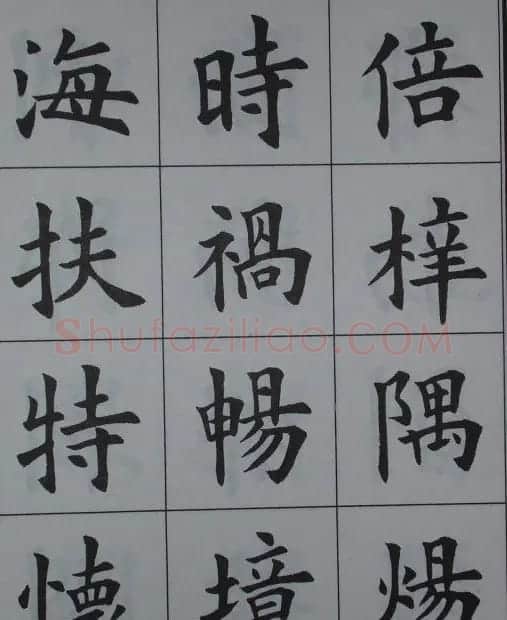 海時倍
扶禍梓
Shufaziliao.COM
特暢隅
懷境煬